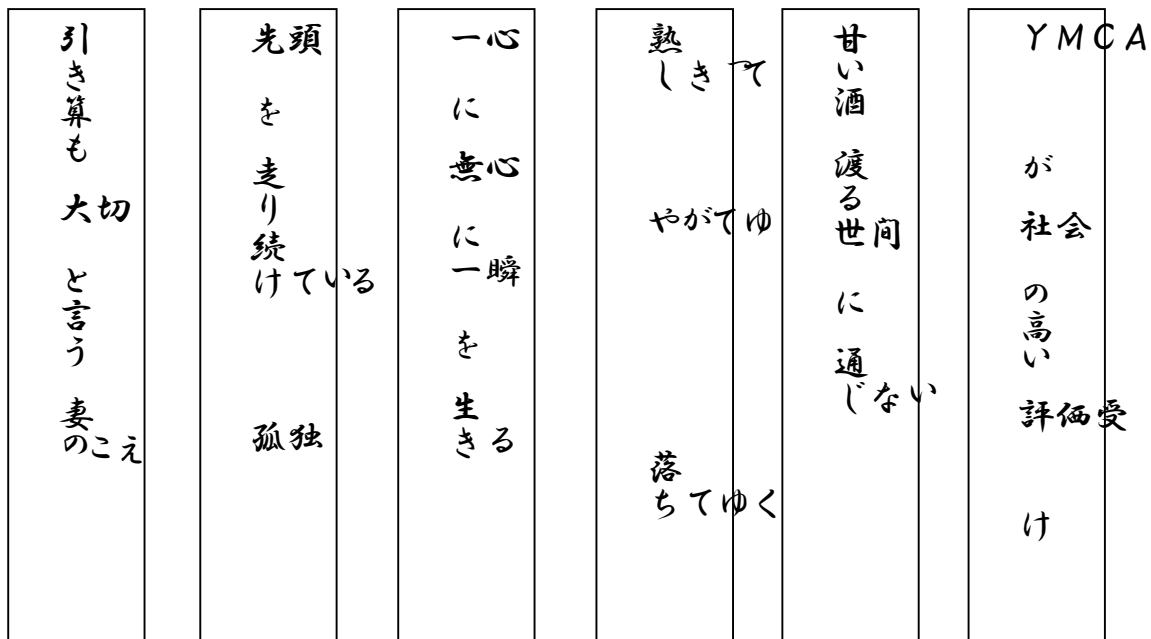 YMCAが社会の高い評価受け
甘い酒渡る世間に通じない
熟しきってやがてゆ落ちてゆく
一心に無心に一瞬を生きる
先頭を走り続けている孤独
引き算も大切と言う妻のこえ